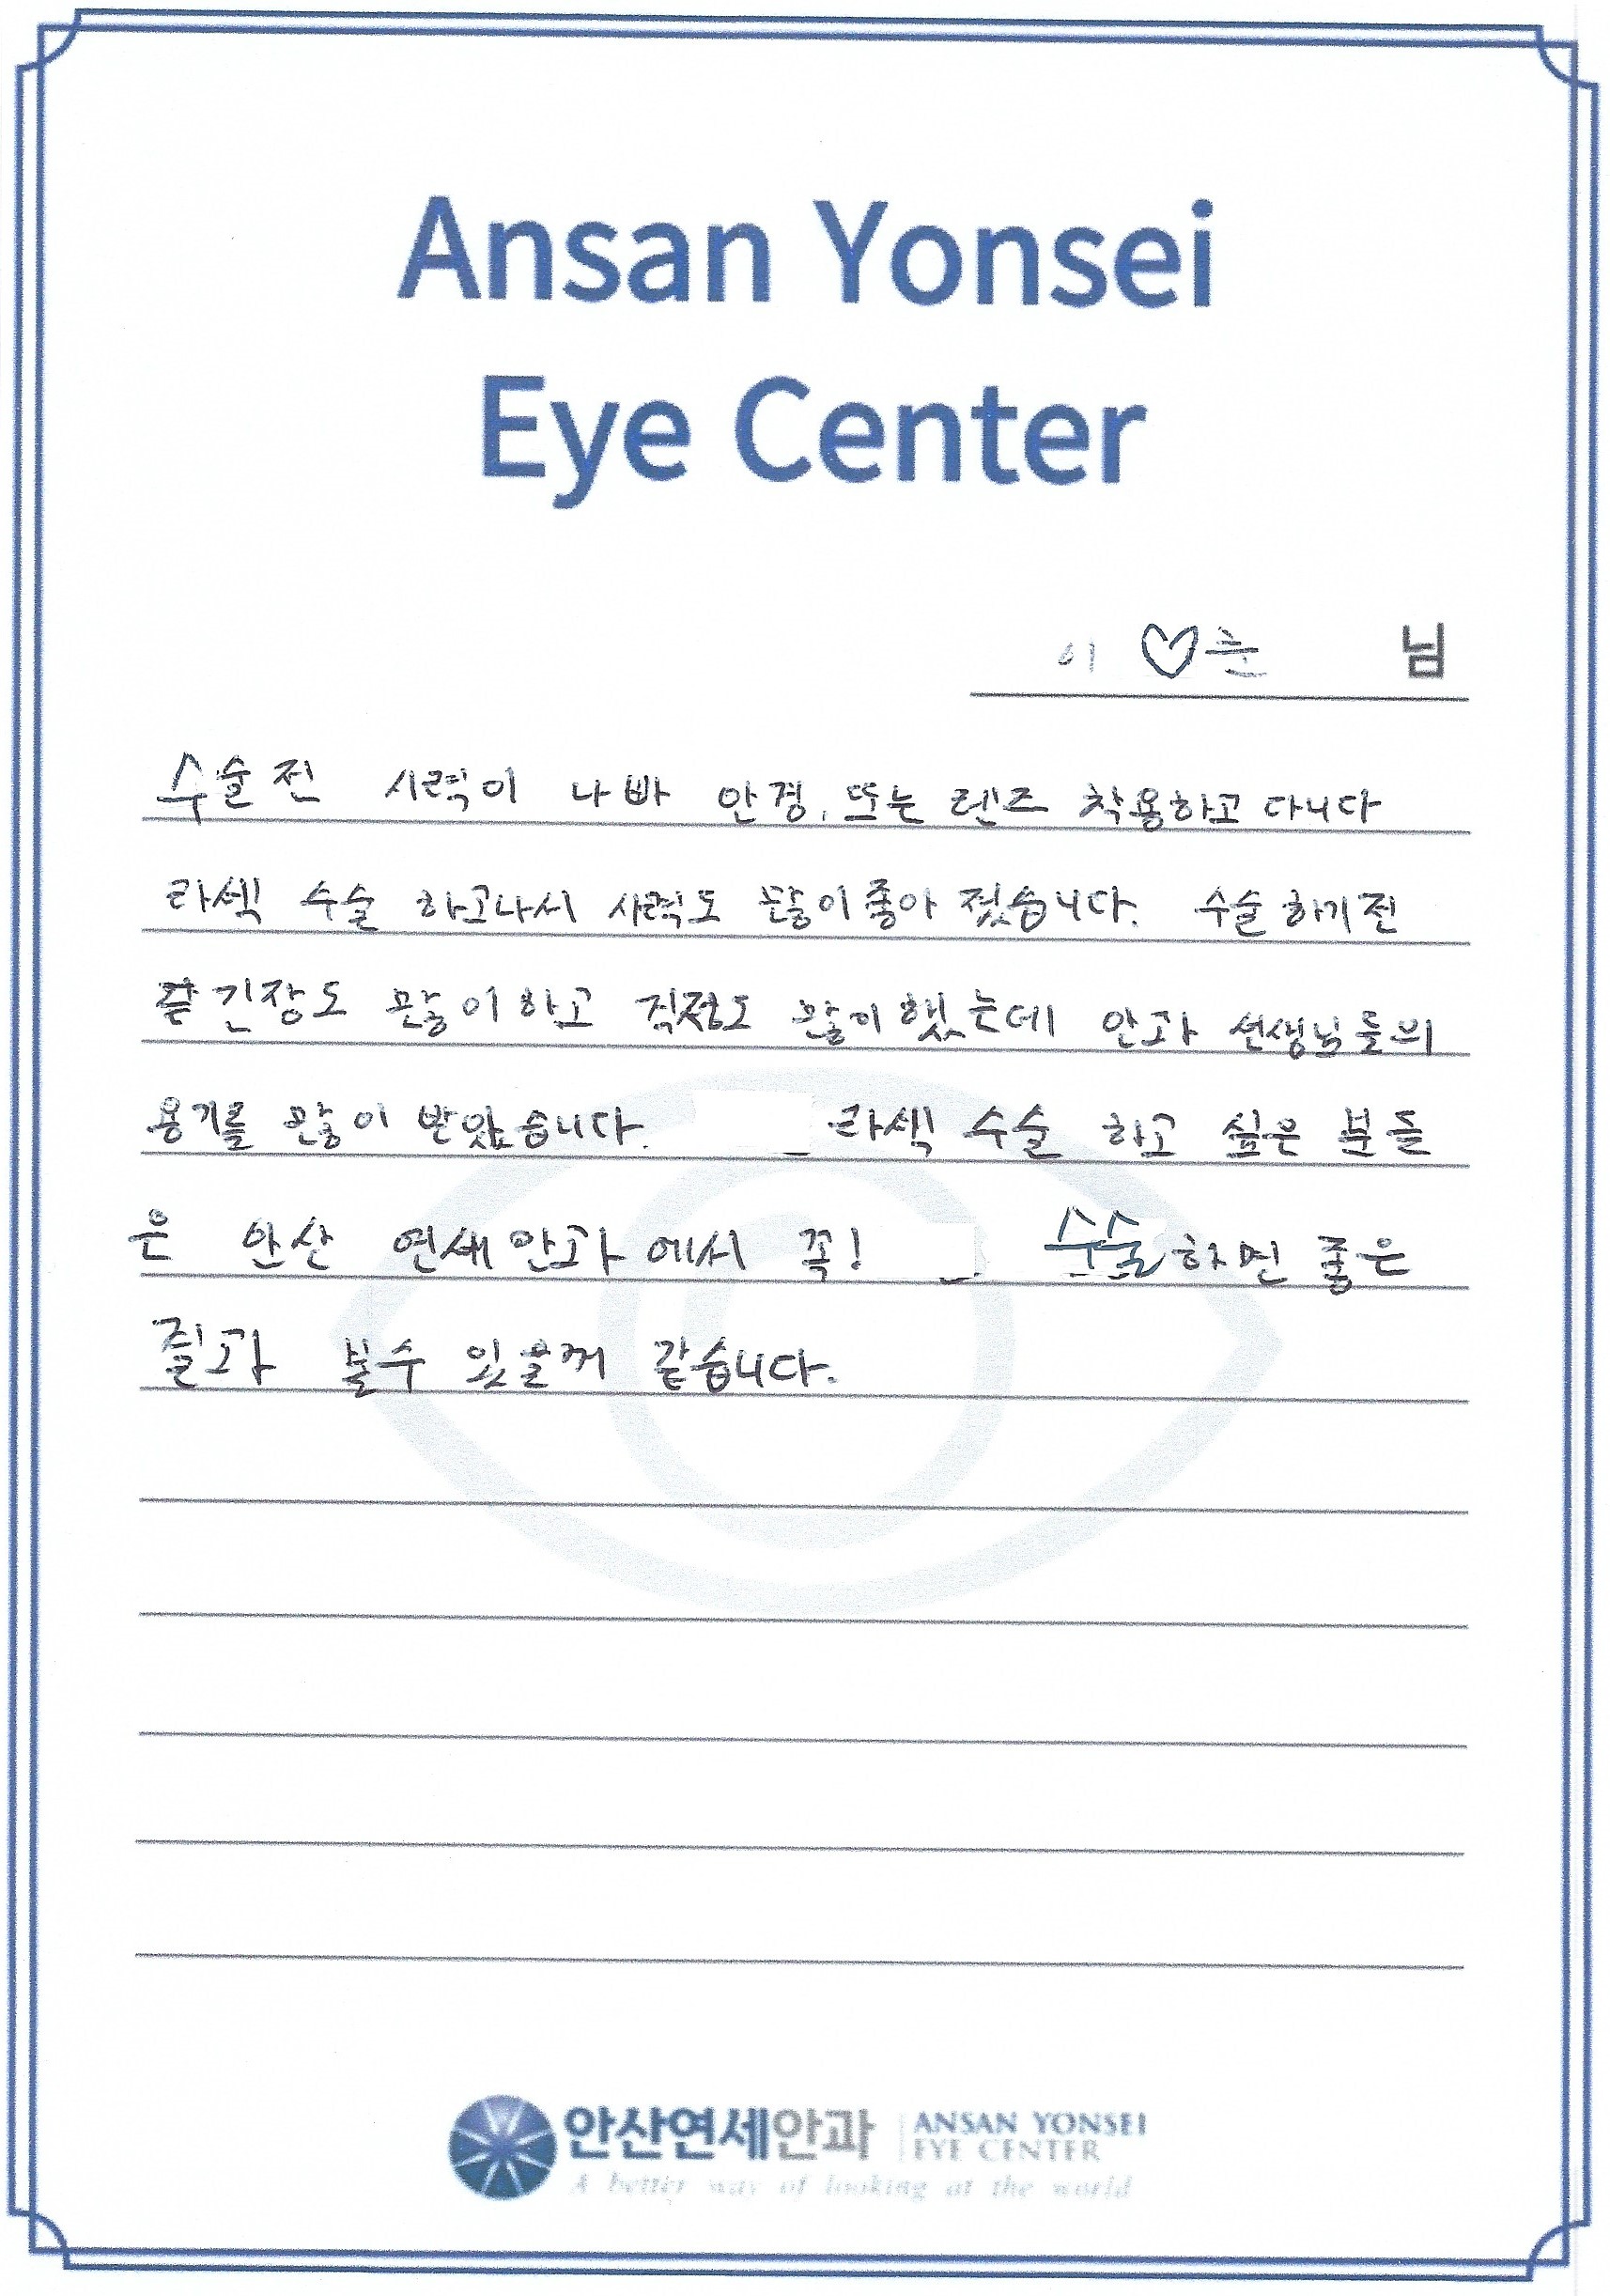 Ansan Yonsei
Eye Center
이 ♡준 님
수술전 시력이 나빠 안경, 또는 렌즈 착용하고 다니다
라섹 수술 하고나서 시력도 많이좋아 졌습니다. 수술하기전
긴장도 많이하고 걱정도 많이했는데 안과 선생님들의
용기를 많이 받았습니다. 라섹 수술 하고 싶은 분들
은 안산 연세안과에서 꼭! 수술하면 좋은
결과 볼수 있을꺼 같습니다.
안산연세안과 ANSAN YONSEI
EYE CENTER
A better way of looking at the world